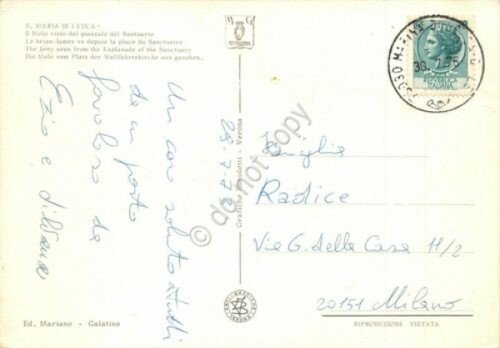 S. MARIA DI LEUCA -
Il Molo visto dal piazzale del Santuario
Le brise-lames vu depuis la place du Sanctuaire
The Jetty seen from the Esplanade of the Sanctuary
die Mole vom Platz der Wallfahrtskirche aus gesehen.
M G
30.7.75
Un caro saluto
da un posto
favoloso da
Ezio e
Grafiche - Verona
do not copy
Famiglia
Radice
Via G. della Casa 11/2
20151 Milano
Ed. Mariano - Galatina
RIPRODUZIONE VIETATA